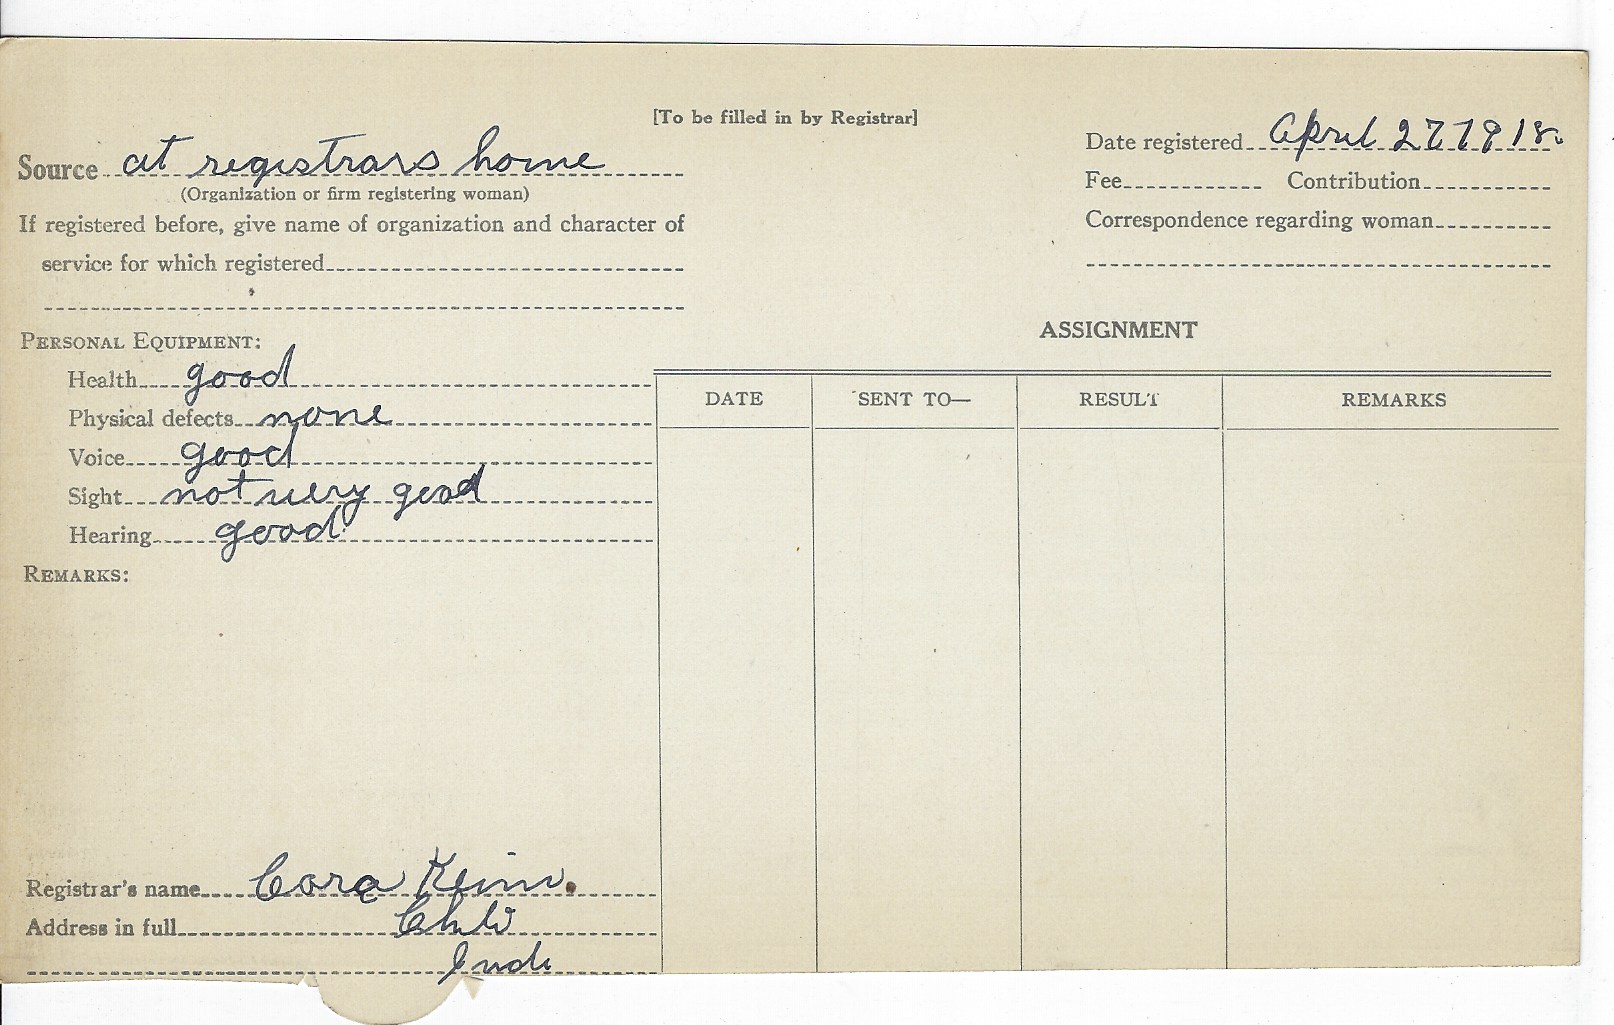 [To be filled in by Registrar]
Source at registrars home
(Organization or firm registering woman)
If registered before, give name of organization and character of
service for which registered
Date registered April 27 1918.
Fee Contribution
Correspondence regarding woman
PERSONAL EQUIPMENT:
Health good
Physical defects none
Voice good
Sight not very good
Hearing good
REMARKS:
ASSIGNMENT
DATE SENT TO— RESULT REMARKS
Registrar's name Cora Keim.
Address in full Chili
Ind.